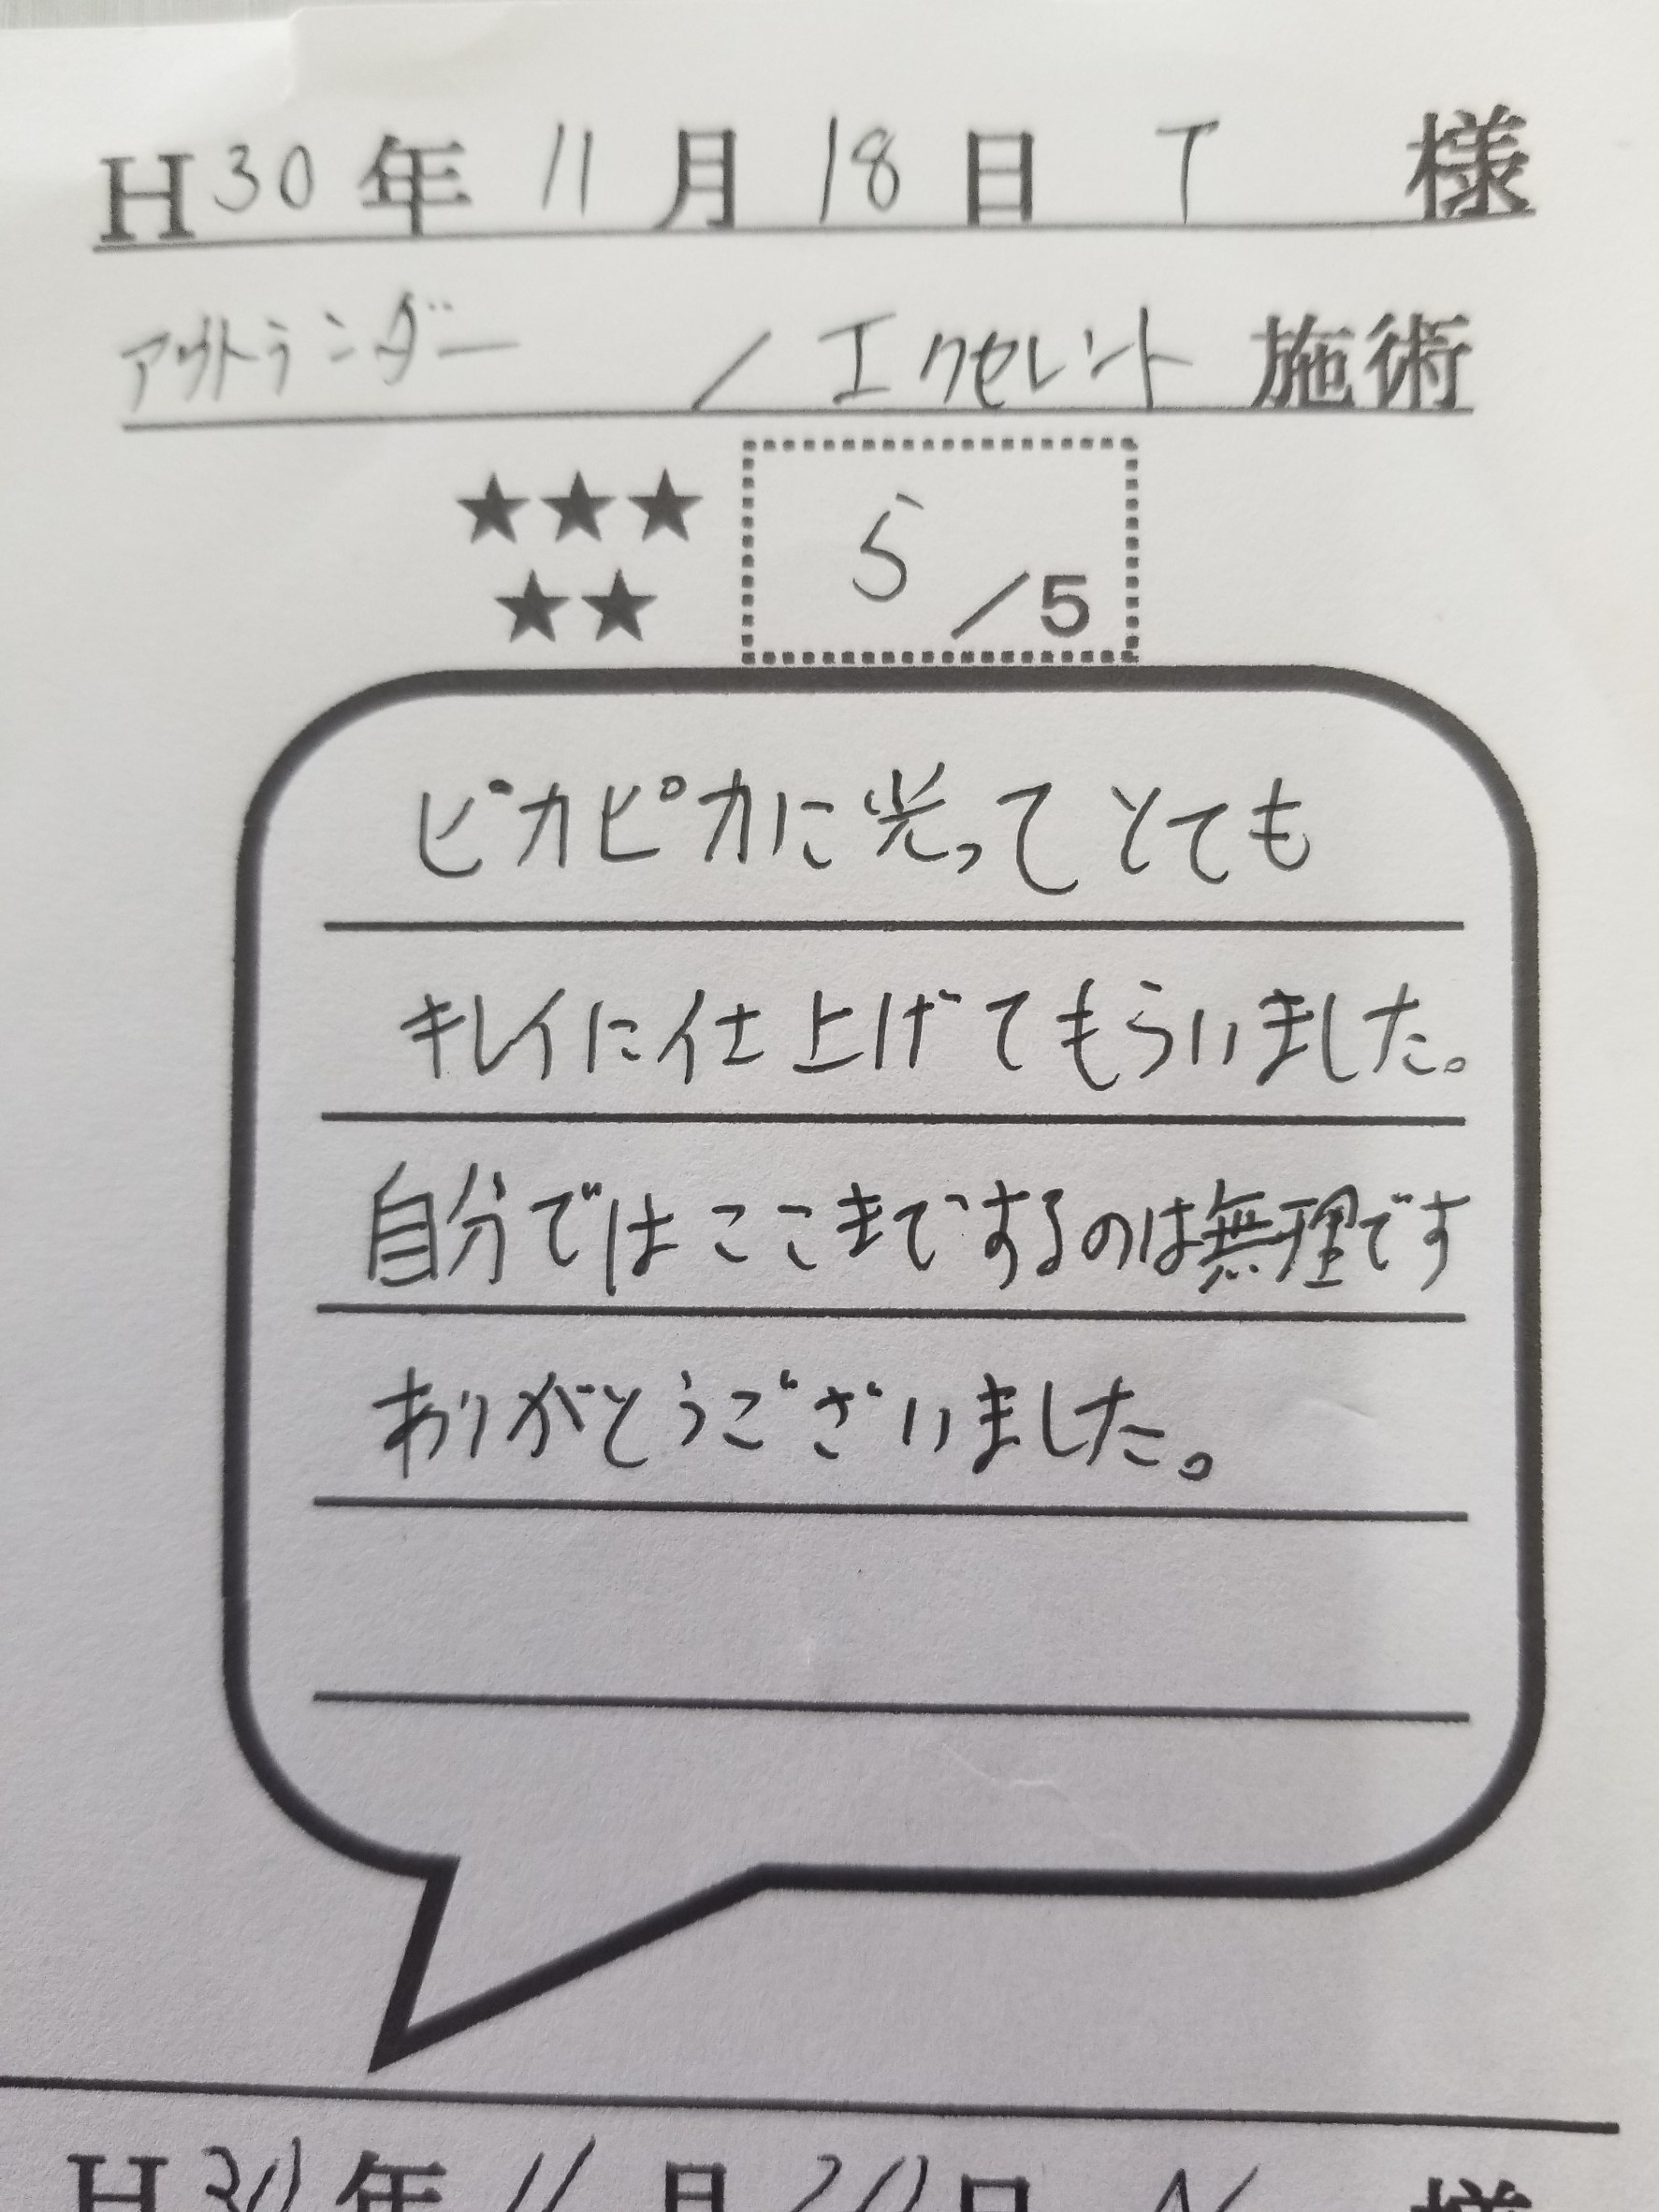 H30年 11月 18日 T 様
アウトランダー / エクセレント 施術
★★★
★★
5 /5
ピカピカに光ってとても
キレイに仕上げてもらいました。
自分ではここまでするのは無理です
ありがとうございました。
H30年 11月 20日 N 様